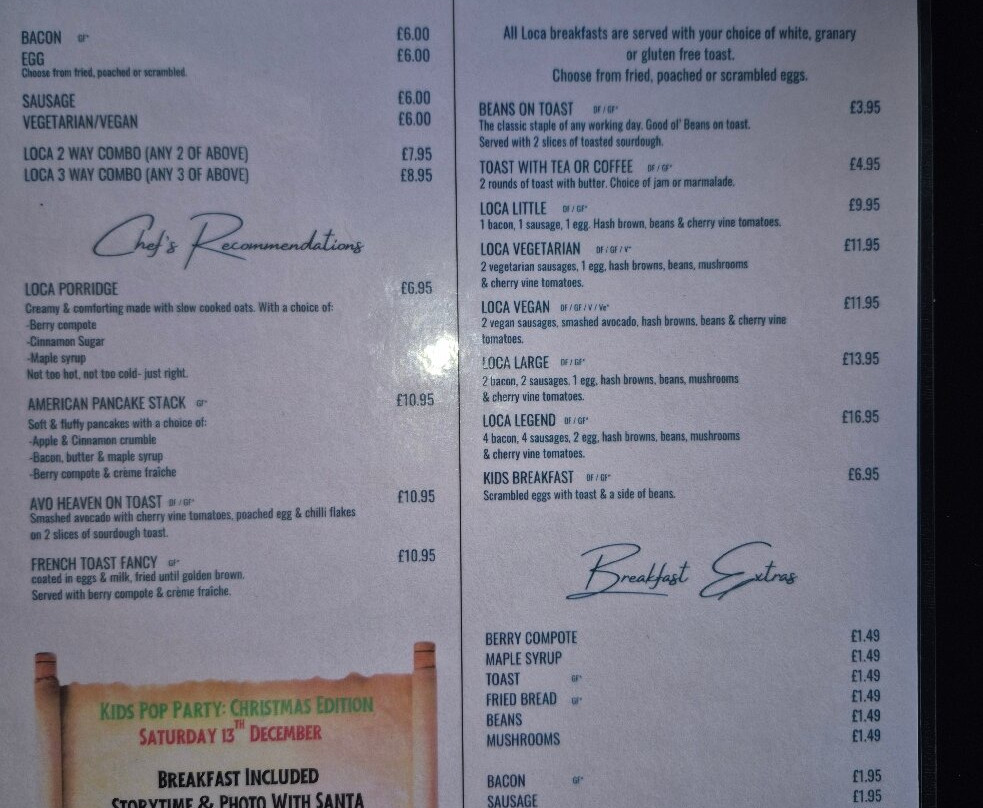 BACON GF* £6.00
EGG £6.00
Choose from fried, poached or scrambled.
SAUSAGE £6.00
VEGETARIAN/VEGAN £6.00
LOCA 2 WAY COMBO (ANY 2 OF ABOVE) £7.95
LOCA 3 WAY COMBO (ANY 3 OF ABOVE) £8.95
Chef's Recommendations
LOCA PORRIDGE £6.95
Creamy & comforting made with slow cooked oats. With a choice of:
-Berry compote
-Cinnamon Sugar
-Maple syrup
Not too hot, not too cold- just right.
AMERICAN PANCAKE STACK GF* £10.95
Soft & fluffy pancakes with a choice of:
-Apple & Cinnamon crumble
-Bacon, butter & maple syrup
-Berry compote & crème fraîche
AVO HEAVEN ON TOAST DF / GF* £10.95
Smashed avocado with cherry vine tomatoes, poached egg & chilli flakes
on 2 slices of sourdough toast.
FRENCH TOAST FANCY GF* £10.95
coated in eggs & milk, fried until golden brown.
Served with berry compote & crème fraîche.
KIDS POP PARTY: CHRISTMAS EDITION
SATURDAY 13TH DECEMBER
BREAKFAST INCLUDED
STORYTIME & PHOTO WITH SANTA
All Loca breakfasts are served with your choice of white, granary
or gluten free toast.
Choose from fried, poached or scrambled eggs.
BEANS ON TOAST DF / GF* £3.95
The classic staple of any working day. Good ol' Beans on toast.
Served with 2 slices of toasted sourdough.
TOAST WITH TEA OR COFFEE DF / GF* £4.95
2 rounds of toast with butter. Choice of jam or marmalade.
LOCA LITTLE DF / GF* £9.95
1 bacon, 1 sausage, 1 egg. Hash brown, beans & cherry vine tomatoes.
LOCA VEGETARIAN DF / GF / V* £11.95
2 vegetarian sausages, 1 egg, hash browns, beans, mushrooms
& cherry vine tomatoes.
LOCA VEGAN DF / GF / V / Ve* £11.95
2 vegan sausages, smashed avocado, hash browns, beans & cherry vine
tomatoes.
LOCA LARGE DF / GF* £13.95
2 bacon, 2 sausages. 1 egg, hash browns, beans, mushrooms
& cherry vine tomatoes.
LOCA LEGEND DF / GF* £16.95
4 bacon, 4 sausages, 2 egg, hash browns, beans, mushrooms
& cherry vine tomatoes.
KIDS BREAKFAST DF / GF* £6.95
Scrambled eggs with toast & a side of beans.
Breakfast Extras
BERRY COMPOTE £1.49
MAPLE SYRUP £1.49
TOAST GF* £1.49
FRIED BREAD GF* £1.49
BEANS £1.49
MUSHROOMS £1.49
BACON GF* £1.95
SAUSAGE £1.95